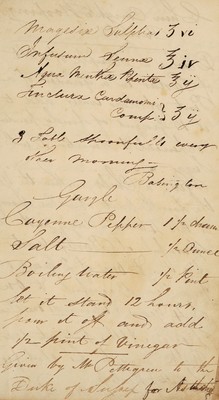 Magnesia Sulphas ʒ vi
Infusum Senna ℥ iv
Aqua Mentha Piperita ℥ ij
Tinctura Cardamomi
Comp: } ʒ ij
2 Table spoonfuls every
Morning
Babington
Gargle
Cayenne Pepper 1 1/2 dram
Salt 1/2 Ounce
Boiling Water 1/2 Pint
let it stand 12 hours,
pour it off and add
1/2 pint of Vinegar
Given by Mr Pettigrew to the
Duke of Sussex for